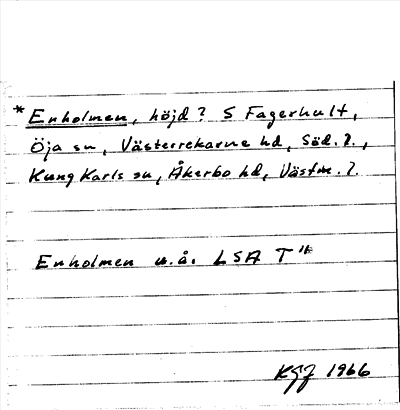 * Enholmen, höjd? S Fagerhult,
Öja sn, Västerrekarne hd, Söd. l.,
Kung Karls sn, Åkerbo hd, Västm. l.
Enholmen u.å. LSA T
KGJ 1966